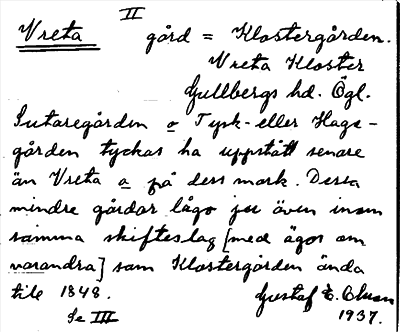 II
Vreta gård = Klostergården.
Vreta Kloster
Gullbergs hd. Ögl.
Sutaregården o Tysk- eller Hage-
gården tyckas ha uppstått senare
än Vreta a på dess mark. Dessa
mindre gårdar lågo ju även inom
samma skifteslag [med ägor om
varandra] som Klostergården ända
till 1848. Gustaf E. Olsson
Se III 1937.